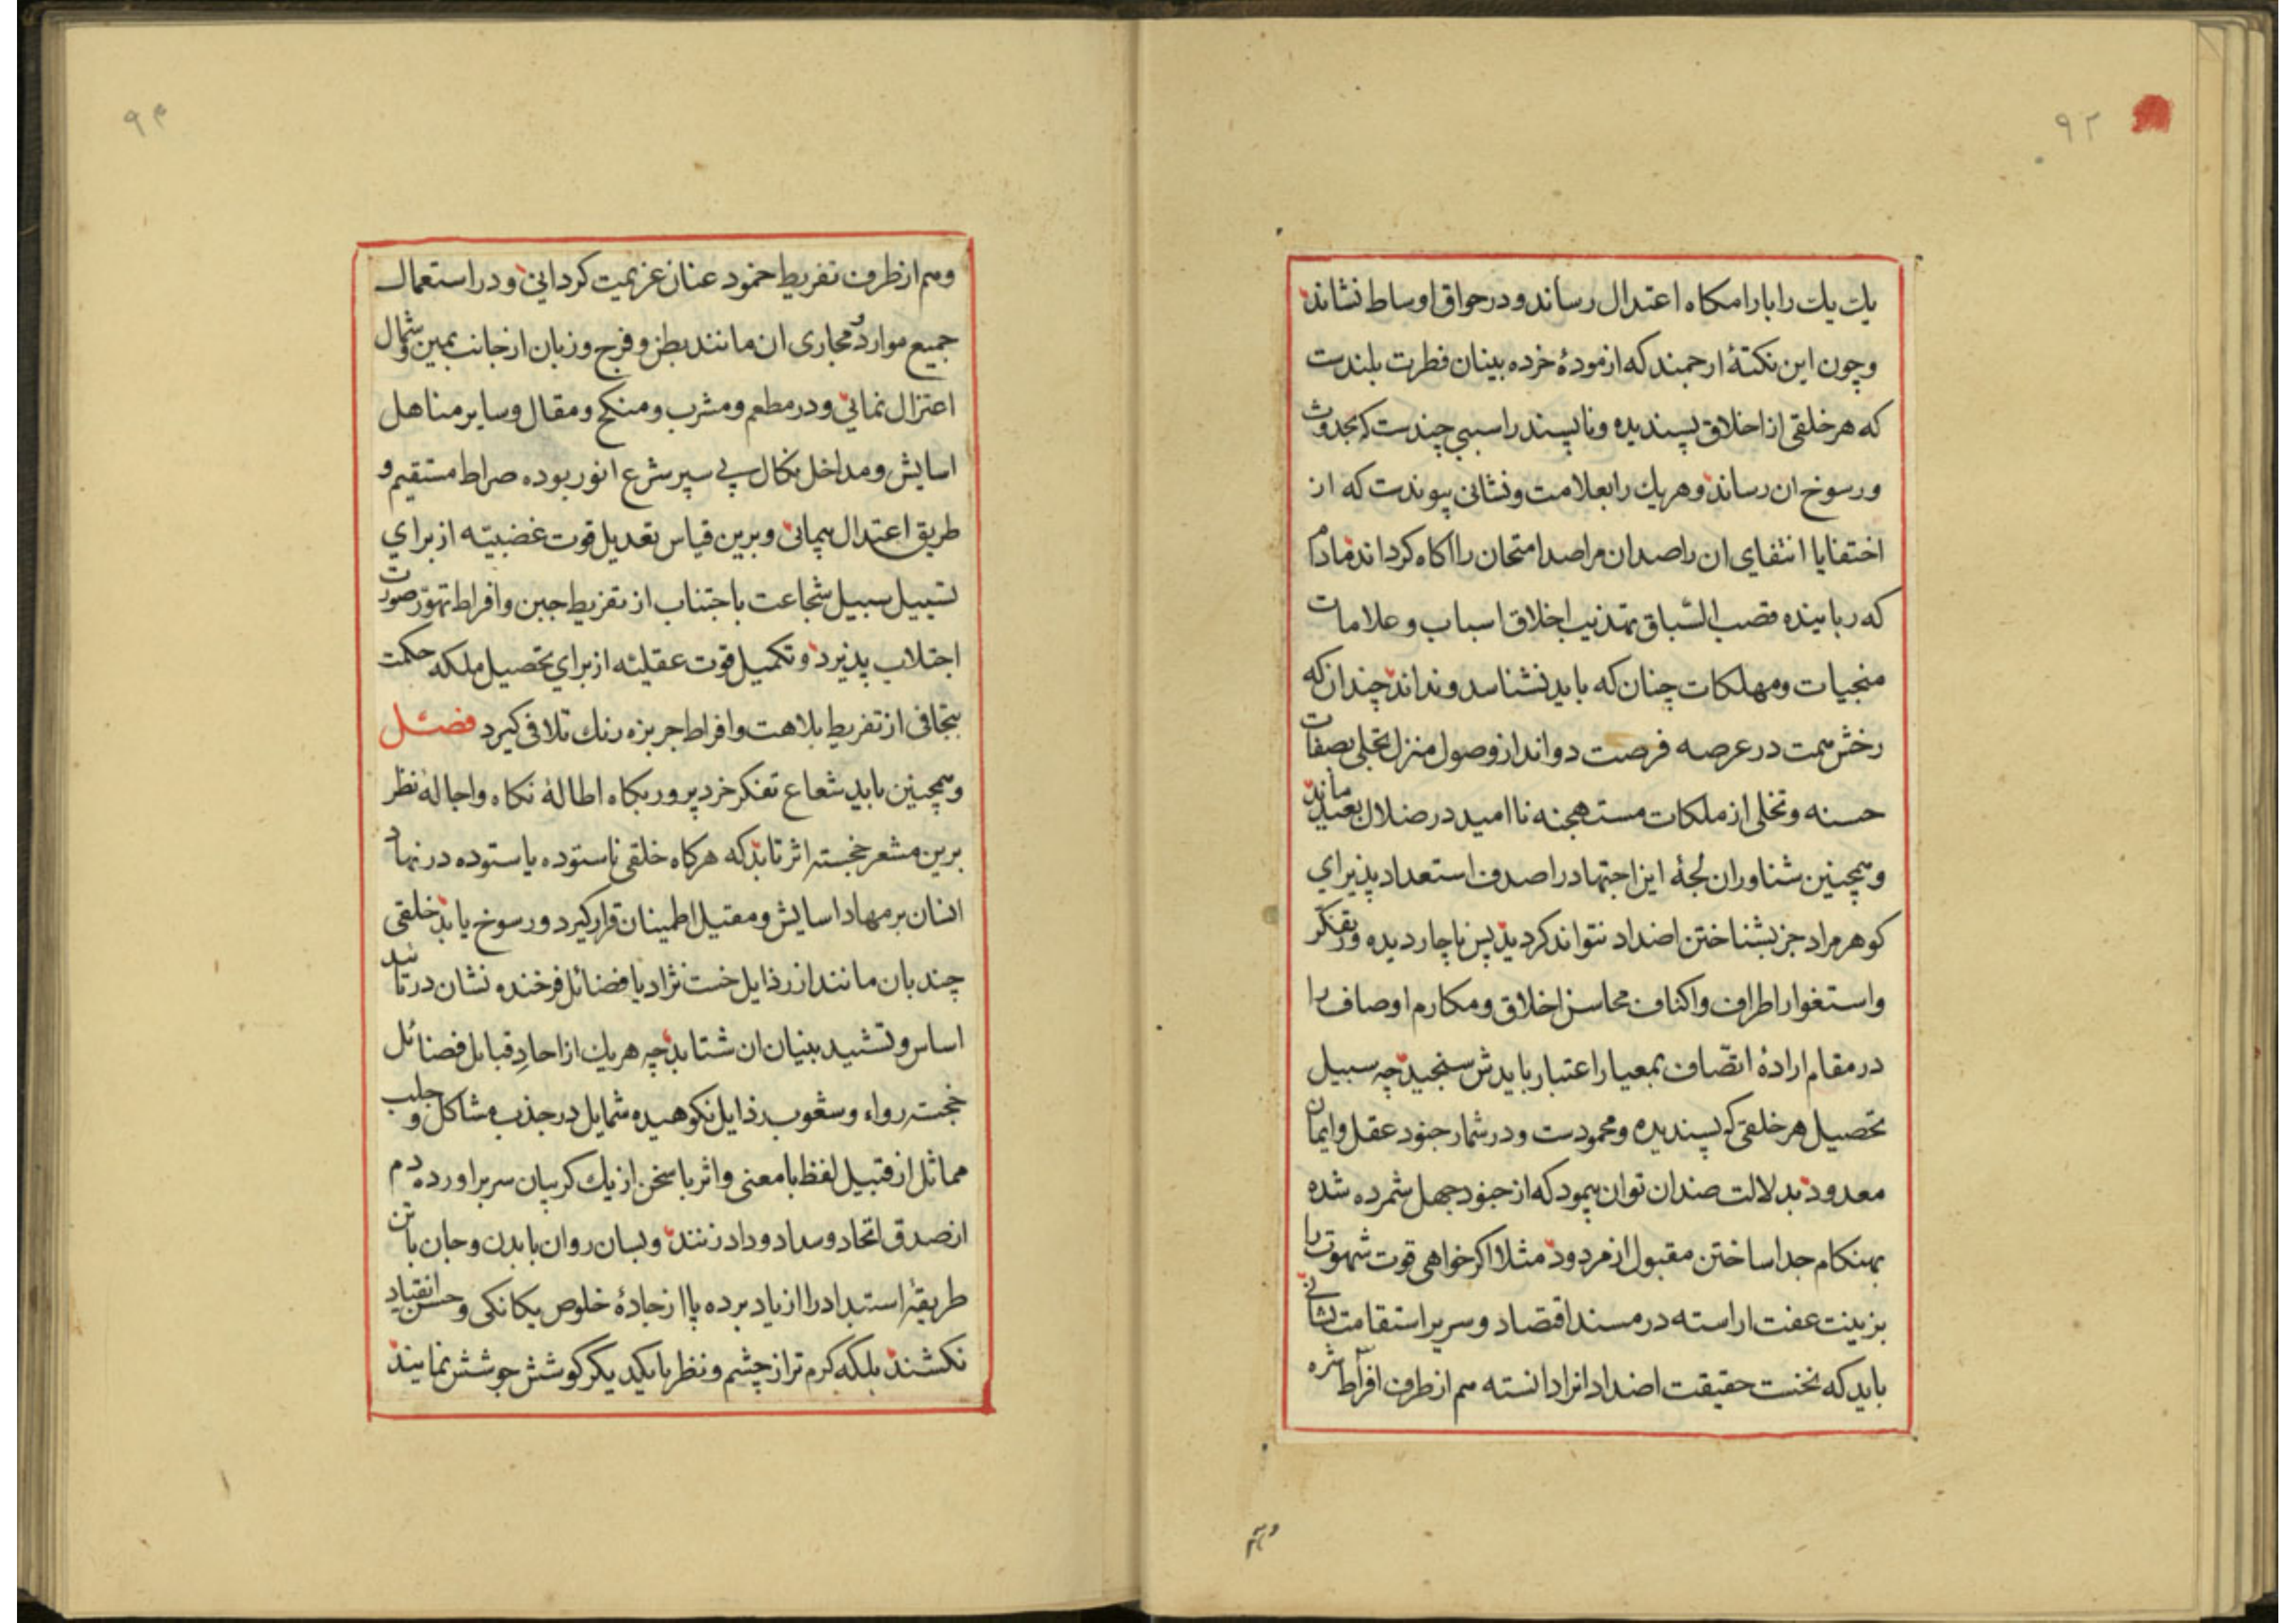 ۹۲
یك یك را بارامكاه اعتدال رساند و در حواق اوساط نشاند
و چون این نكتهٔ ارجمند كه ازمودهٔ خرده بینان فطرت بلندست
كه هر خلقی از اخلاق پسندیده و ناپسند را سببی چندست كه بحدوث
و رسوخ ان رساند و هر یك را بعلامت و نشانی پیوندت كه از
اختفا یا انتفای ان راصدان مراصد امتحان را اكاه كرداند مادام
كه رباینده قصب السّباق تهذیب اخلاق اسباب و علامات
منجیات و مهلكات چنان كه باید نشناسد و نداند چندان كه
رخش همت در عرصه فرصت دواند از وصول منزل تحلی بصفات
حسنه و تخلی از ملكات مستهجنه نا امید در ضلال بعید ماند
و همچنین شناوران لجهٔ این اجتهاد را صدف استعداد پذیرای
كوهر مراد جز بشناختن اضداد نتواند كردید پس ناچار دیده ور تفكّر
و استغوار اطراف و اكناف محاسن اخلاق و مكارم اوصاف را
در مقام ارادهٔ اتّصاف بمعیار اعتبار بایدش سنجید چه سبیل
تحصیل هر خلقی كه پسندیده و محمودست و در شمار جنود عقل و ایمان
معدود بدلالت ضدان توان پیمود كه از جنود جهل شمرده شده
بهنكام جدا ساختن مقبول از مردود مثلا اكر خواهی قوت شهوت را
بزینت عفت اراسته در مسند اقتصاد و سریر استقامت نشانی
باید كه نخست حقیقت اضداد انرا دانسته هم از طرف افراط شره
و هم
۹۳
و هم از طرف تفریط خمود عنان عزیمت كردانی و در استعمال
جمیع موارد و مجاری ان مانند بطن و فرج و زبان از جانب یمین و شمال
اعتزال نمائی و در مطعم و مشرب و منكح و مقال و سایر مناهل
اسایش و مداخل نكال پی سپر شرع انور بوده صراط مستقیم و
طریق اعتدال پیمائی و برین قیاس تعدیل قوت غضبیّه از برای
تسبیل سبیل شجاعت باجتناب از تفریط جبن و افراط تهوّر صورت
اجتلاب پذیرد و تكمیل قوت عقلیّه از برای تحصیل ملكه حكمت
بتجافی از تفریط بلاهت و افراط جربزه رنك تلافی كیرد فصل
و همچنین باید شعاع تفكر خردپرور بكاه اطالهٔ نكاه و اجالهٔ نظر
برین مشعر خجسته اثر تابد كه هركاه خلقی ناستوده یا ستوده در نهاد
انسان بر مهاد اسایش و مقتیل اطمینان قرار كیرد و رسوخ یابد خلقی
چند بان مانند از رذایل خست نژاد یا فضائل فرخنده نشان در تاسیس
اساس و تشیید بنیان ان شتابد چه هر یك از احادِ قبایل فضائل
خجسته رواء و شعوب رذایل نكوهیده شمایل در جذب مشاكل و جلب
مماثل از قبیل لفظ با معنی و اثر با سخن از یك كریبان سر براورده دم
از صدق اتحاد و سداد وداد زنند و بسان روان با بدن و جان با تن
طریقهٔ استبداد را از یاد برده پا از جادهٔ خلوص یكانكی و حسن انقیاد
نكشند بلكه كرم تر از چشم و نظر با یكدیكر كوشش جوشش نمایند